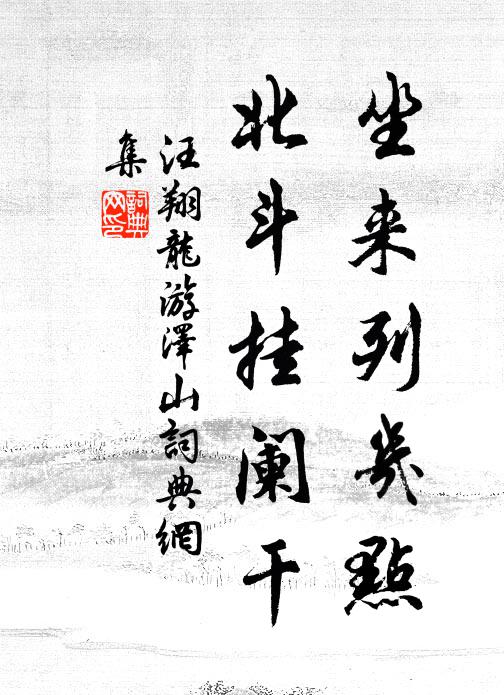 坐来列几點
北斗挂阑干
汪翔龍游澤山詞典網
集
詞典
网印